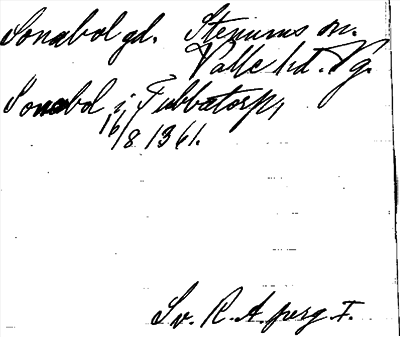 Sonabol gd. Stenums sn.
Valle hd. Vg.
Sonabol i Fubbatorp,
16/8 1361.
Sv. R. A. perg. I.